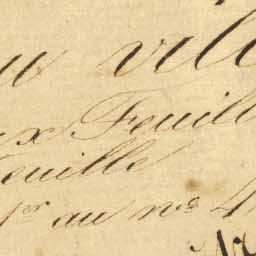 au vill
x Feuill
Feuille
1er au no 4